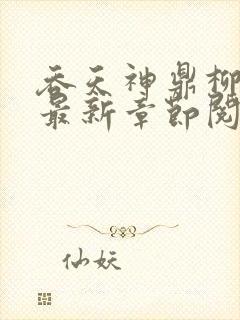 吞天神鼎柳
最新章节阅
仙妖